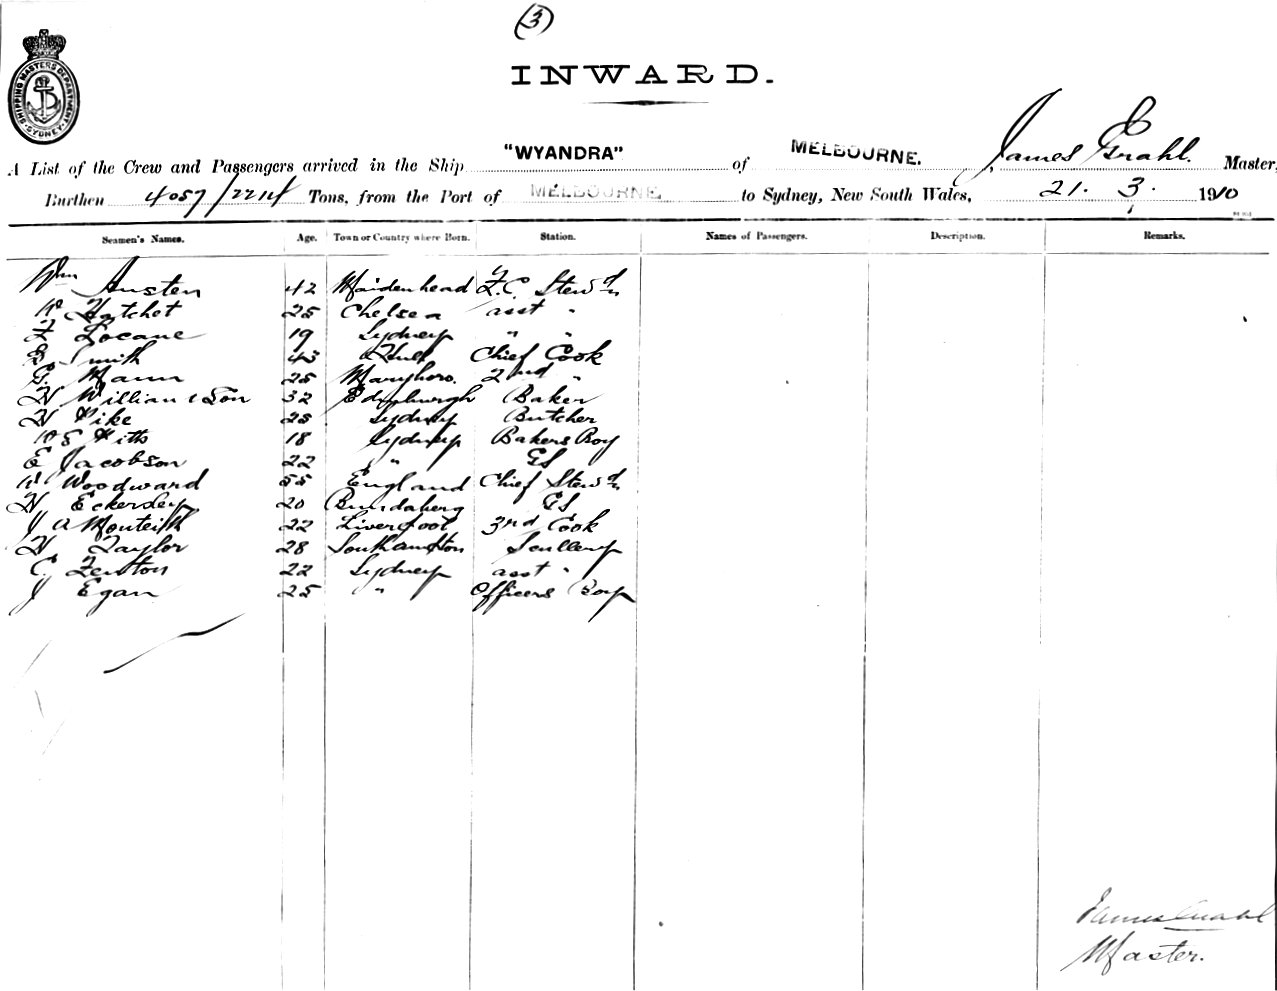 (3)
SHIPPING MASTERS DEPARTMENT SYDNEY
INWARD.
A List of the Crew and Passengers arrived in the Ship "WYANDRA" of MELBOURNE, James Grahl Master,
Burthen 4057/2214 Tons, from the Port of MELBOURNE, to Sydney, New South Wales, 21. 3. 1910
Seamen's Names. Age. Town or Country where Born. Station. Names of Passengers. Description. Remarks.
Wm Austen 42 Maidenhead F.C. Stewd
W Hatchet 25 Chelsea asst "
F Locane 19 Sydney " "
B Smith 43 Hull Chief Cook
G. Mann 25 Maryboro. 2nd "
W Williamson 32 Edinburgh Baker
W Pike 25 Sydney Butcher
W S Pitts 18 Sydney Bakers Boy
E Jacobson 22 " GS
W Woodward 55 England Chief Stewd
W Eckersley 20 Bundaberg GS
J A Monteith 22 Liverpool 3rd Cook
W Taylor 28 Southampton Scullery
C. Fenton 22 Sydney asst "
J Egan 25 " Officers Boy
James Grahl
Master.